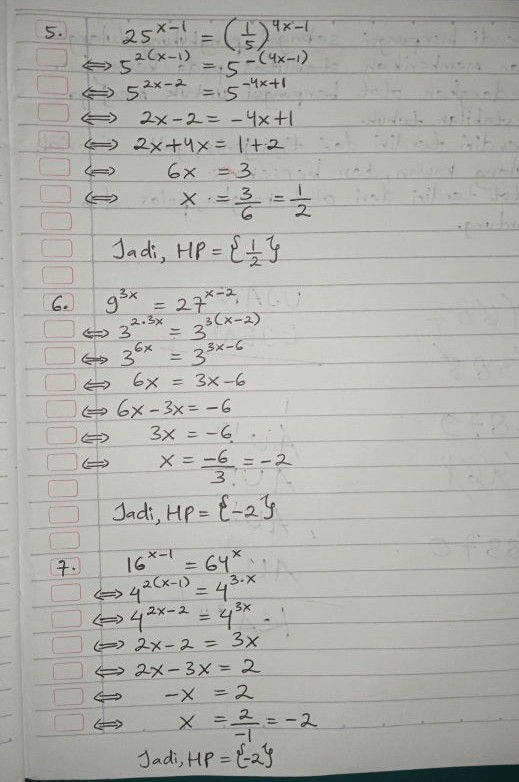 5. 25^(x-1) = (1/5)^(4x-1)
⇔ 5^(2(x-1)) = 5^(-(4x-1))
⇔ 5^(2x-2) = 5^(-4x+1)
⇔ 2x-2 = -4x+1
⇔ 2x+4x = 1+2
⇔ 6x = 3
⇔ x = 3/6 = 1/2
Jadi, HP = {1/2}
6. 9^(3x) = 27^(x-2)
⇔ 3^(2.3x) = 3^(3(x-2))
⇔ 3^(6x) = 3^(3x-6)
⇔ 6x = 3x-6
⇔ 6x-3x = -6
⇔ 3x = -6
⇔ x = -6/3 = -2
Jadi, HP = {-2}
7. 16^(x-1) = 64^x
⇔ 4^(2(x-1)) = 4^(3.x)
⇔ 4^(2x-2) = 4^(3x)
⇔ 2x-2 = 3x
⇔ 2x-3x = 2
⇔ -x = 2
⇔ x = 2/-1 = -2
Jadi, HP = {-2}